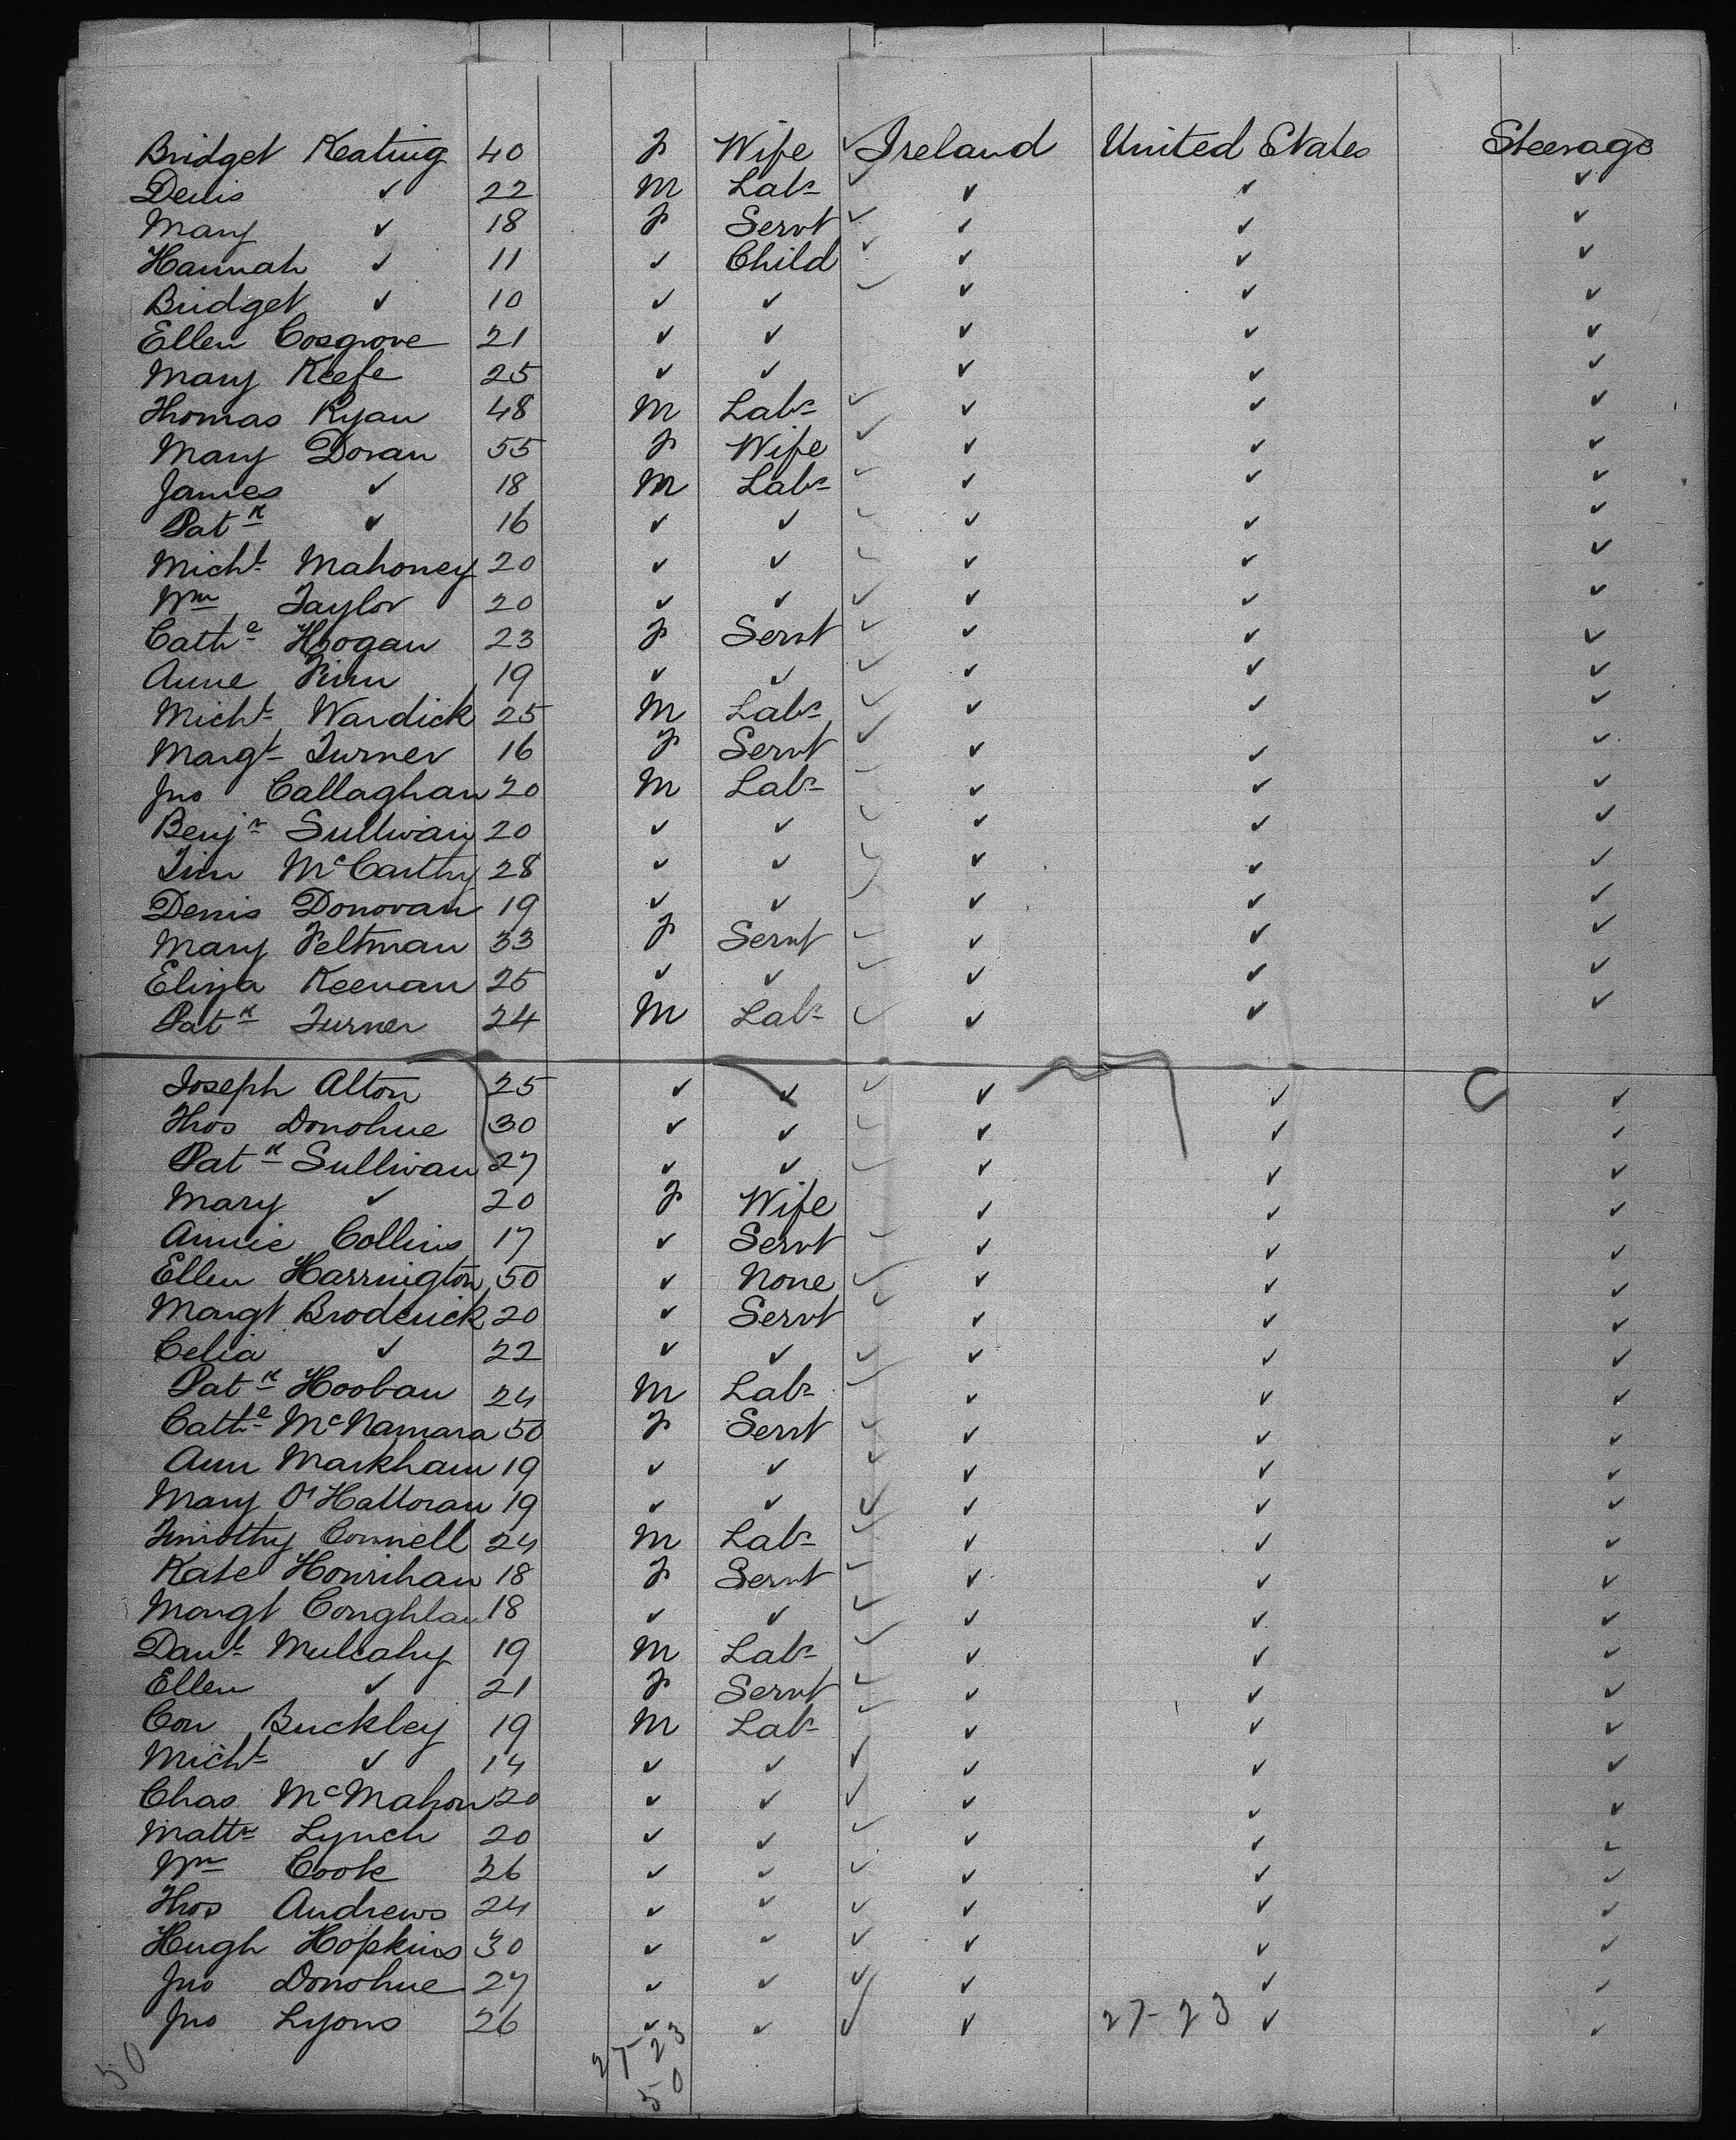 Bridget Keating 40 F Wife ✓ Ireland United States Steerage
Denis ✓ 22 M Labr ✓ ✓ ✓ ✓
Mary ✓ 18 F Servt ✓ ✓ ✓ ✓
Hannah ✓ 11 ✓ Child ✓ ✓ ✓ ✓
Bridget ✓ 10 ✓ ✓ ✓ ✓ ✓ ✓
Ellen Cosgrove 21 ✓ ✓ ✓ ✓ ✓
Mary Keefe 25 ✓ ✓ ✓ ✓ ✓
Thomas Ryan 48 M Labr ✓ ✓ ✓ ✓
Mary Doran 55 F Wife ✓ ✓ ✓ ✓
James ✓ 18 M Labr ✓ ✓ ✓ ✓
Patk ✓ 16 ✓ ✓ ✓ ✓ ✓ ✓
Michl Mahoney 20 ✓ ✓ ✓ ✓ ✓ ✓
Wm Taylor 20 ✓ ✓ ✓ ✓ ✓ ✓
Cathe Hogan 23 F Servt ✓ ✓ ✓ ✓
Anne Finn 19 ✓ ✓ ✓ ✓ ✓ ✓
Michl Wardick 25 M Labr ✓ ✓ ✓ ✓
Margt Turner 16 F Servt ✓ ✓ ✓ ✓
Jno Callaghan 20 M Labr ✓ ✓ ✓ ✓
Benjn Sullivan 20 ✓ ✓ ✓ ✓ ✓ ✓
Tim McCarthy 28 ✓ ✓ ✓ ✓ ✓ ✓
Denis Donovan 19 ✓ ✓ ✓ ✓ ✓ ✓
Mary Feltman 33 F Servt ✓ ✓ ✓ ✓
Eliza Keenan 25 ✓ ✓ ✓ ✓ ✓ ✓
Patk Turner 24 M Labr ✓ ✓ ✓ ✓
Joseph Alton 25 ✓ ✓ ✓ ✓ ✓ ✓
Thos Donohue 30 ✓ ✓ ✓ ✓ ✓ ✓
Patk Sullivan 27 ✓ ✓ ✓ ✓ ✓ ✓
Mary ✓ 20 F Wife ✓ ✓ ✓
Annie Collins 17 ✓ Servt ✓ ✓ ✓ ✓
Ellen Harrington 50 ✓ None ✓ ✓ ✓ ✓
Margt Broderick 20 ✓ Servt ✓ ✓ ✓ ✓
Celia ✓ 22 ✓ ✓ ✓ ✓ ✓ ✓
Patk Hooban 24 M Labr ✓ ✓ ✓ ✓
Cathe McNamara 50 F Servt ✓ ✓ ✓ ✓
Ann Markham 19 ✓ ✓ ✓ ✓ ✓ ✓
Mary O'Halloran 19 ✓ ✓ ✓ ✓ ✓ ✓
Timothy Connell 24 M Labr ✓ ✓ ✓ ✓
Kate Hourihan 18 F Servt ✓ ✓ ✓ ✓
Margt Coughlan 18 ✓ ✓ ✓ ✓ ✓ ✓
Danl Mulcahy 19 M Labr ✓ ✓ ✓ ✓
Ellen ✓ 21 F Servt ✓ ✓ ✓ ✓
Con Buckley 19 M Labr ✓ ✓ ✓ ✓
Michl ✓ 14 ✓ ✓ ✓ ✓ ✓ ✓
Chas McMahon 20 ✓ ✓ ✓ ✓ ✓ ✓
Mattw Lynch 20 ✓ ✓ ✓ ✓ ✓ ✓
Wm Cook 26 ✓ ✓ ✓ ✓ ✓ ✓
Thos Andrews 24 ✓ ✓ ✓ ✓ ✓ ✓
Hugh Hopkins 30 ✓ ✓ ✓ ✓ ✓ ✓
Jno Donohue 27 ✓ ✓ ✓ ✓ ✓ ✓
Jno Lyons 26 ✓ ✓ ✓ ✓ 27-23 ✓ ✓
50 27 23
50